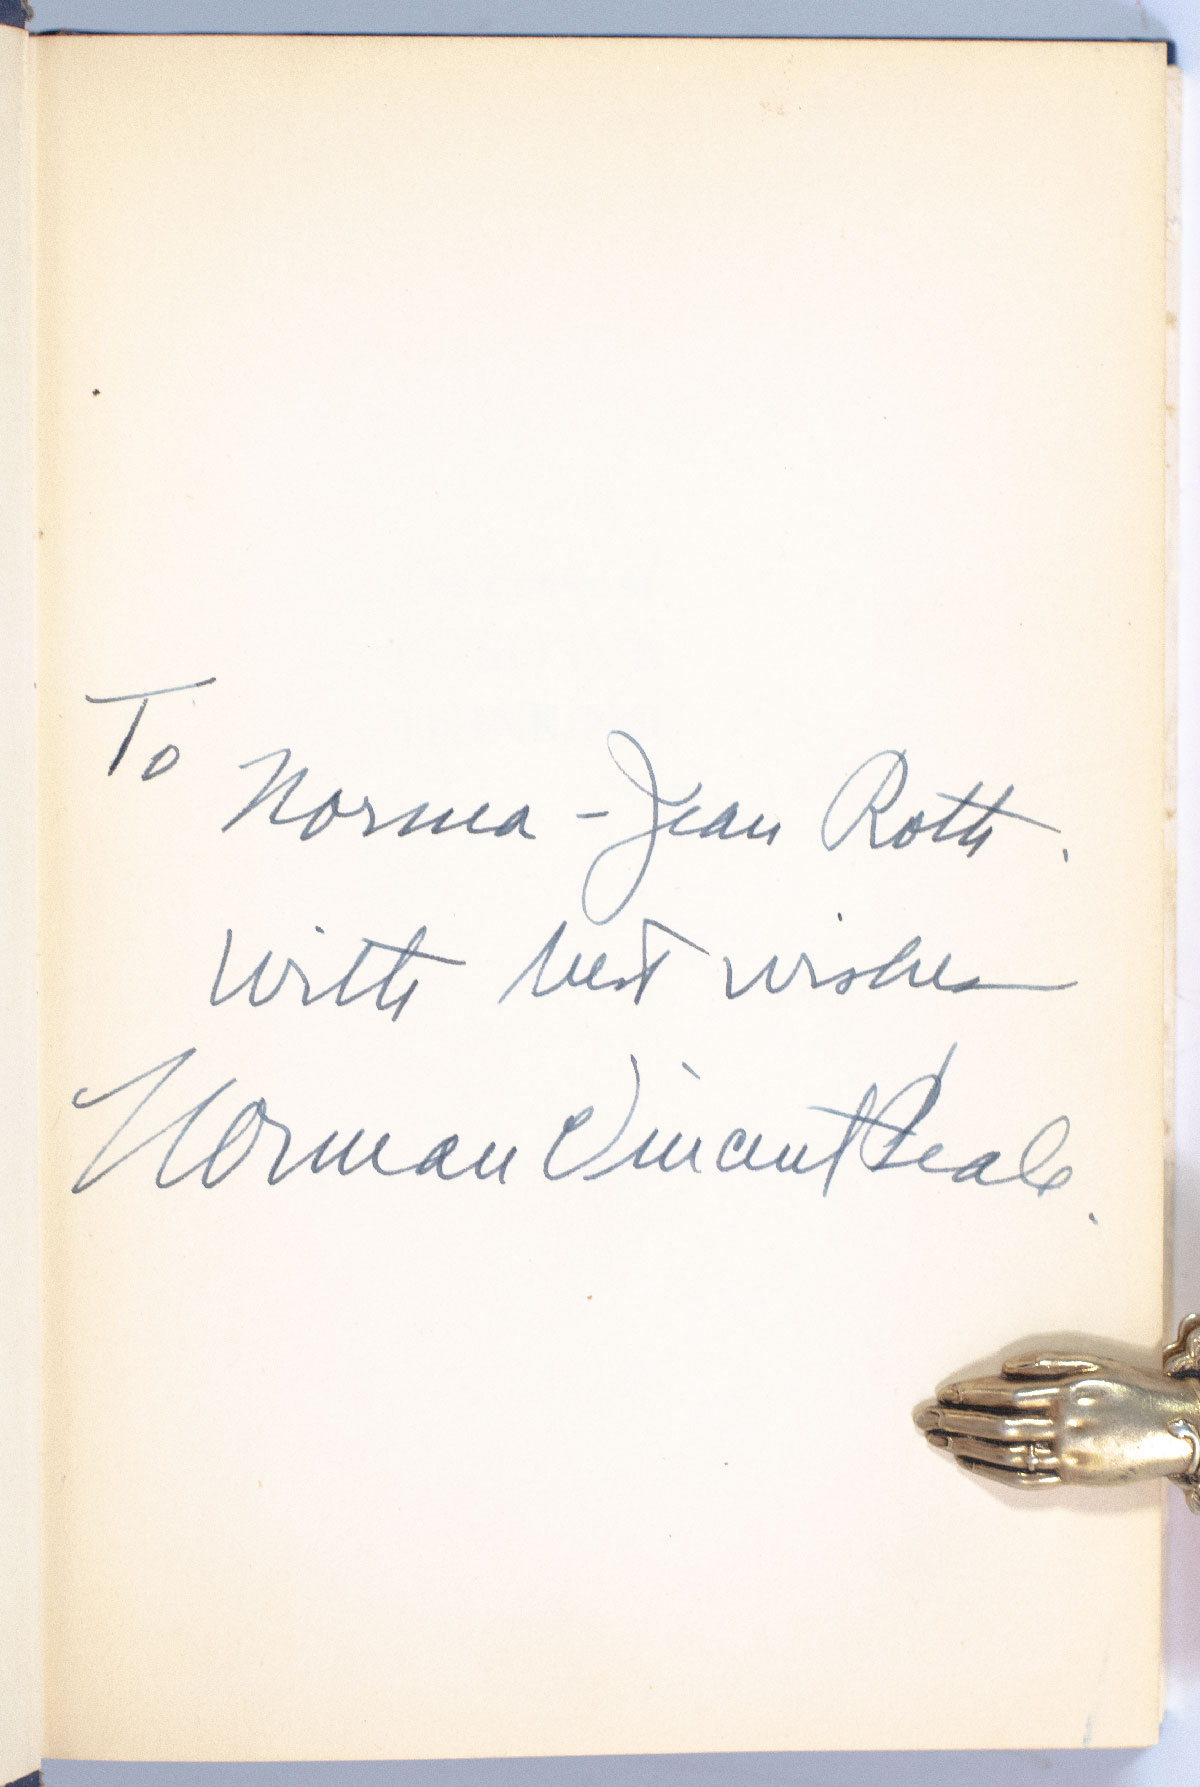 To
Norma-Jean Roth.
With best wishes
Norman Vincent Peale.